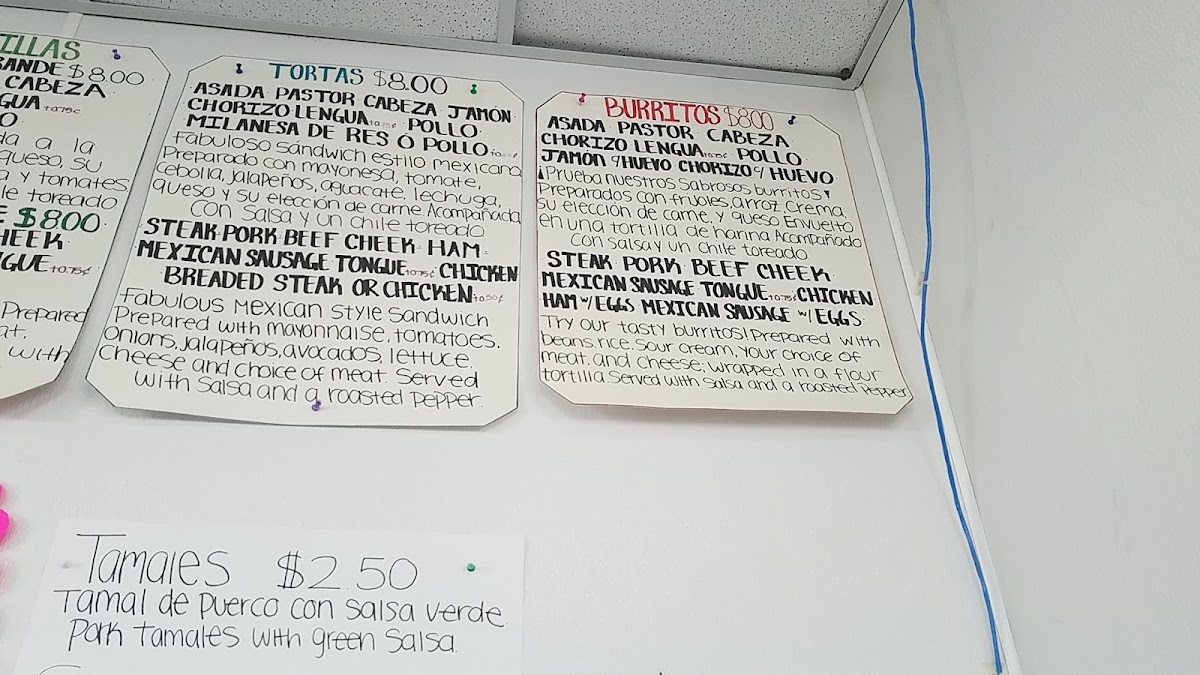 ILLAS
ANDE $8.00
CABEZA
GUA +0.75¢
O
da a la
queso, su
a y tomates
le toreado
E $8.00
HEEK
GUE +0.75¢
Prepared
at.
with
TORTAS $8.00
ASADA PASTOR CABEZA JAMÓN
CHORIZO LENGUA +0.75¢ POLLO
MILANESA DE RES O POLLO +0.50¢
Fabuloso sandwich estilo mexicano
Preparado con mayonesa, tomate,
cebolla, jalapeños, aguacate, lechuga,
queso y su elección de carne Acompañada
con salsa y un chile toreado
STEAK PORK BEEF CHEEK HAM
MEXICAN SAUSAGE TONGUE +0.75¢ CHICKEN
BREADED STEAK OR CHICKEN +0.50¢
Fabulous Mexican style sandwich
Prepared with mayonnaise, tomatoes,
onions, jalapeños, avocados, lettuce,
cheese and choice of meat. Served
with salsa and a roasted pepper.
BURRITOS $8.00
ASADA PASTOR CABEZA
CHORIZO LENGUA +0.75¢ POLLO
JAMÓN Y HUEVO CHORIZO Y HUEVO
¡Prueba nuestros sabrosos burritos!
Preparados con frijoles, arroz, crema,
su elección de carne, y queso Envuelto
en una tortilla de harina Acompañado
con salsa y un chile toreado
STEAK PORK BEEF CHEEK
MEXICAN SAUSAGE TONGUE +0.75¢ CHICKEN
HAM W/ EGGS MEXICAN SAUSAGE W/ EGGS
Try our tasty burritos! Prepared with
beans, rice, sour cream, your choice of
meat, and cheese; wrapped in a flour
tortilla. Served with salsa and a roasted pepper
Tamales $2.50
Tamal de puerco con salsa verde
Pork tamales with green salsa.